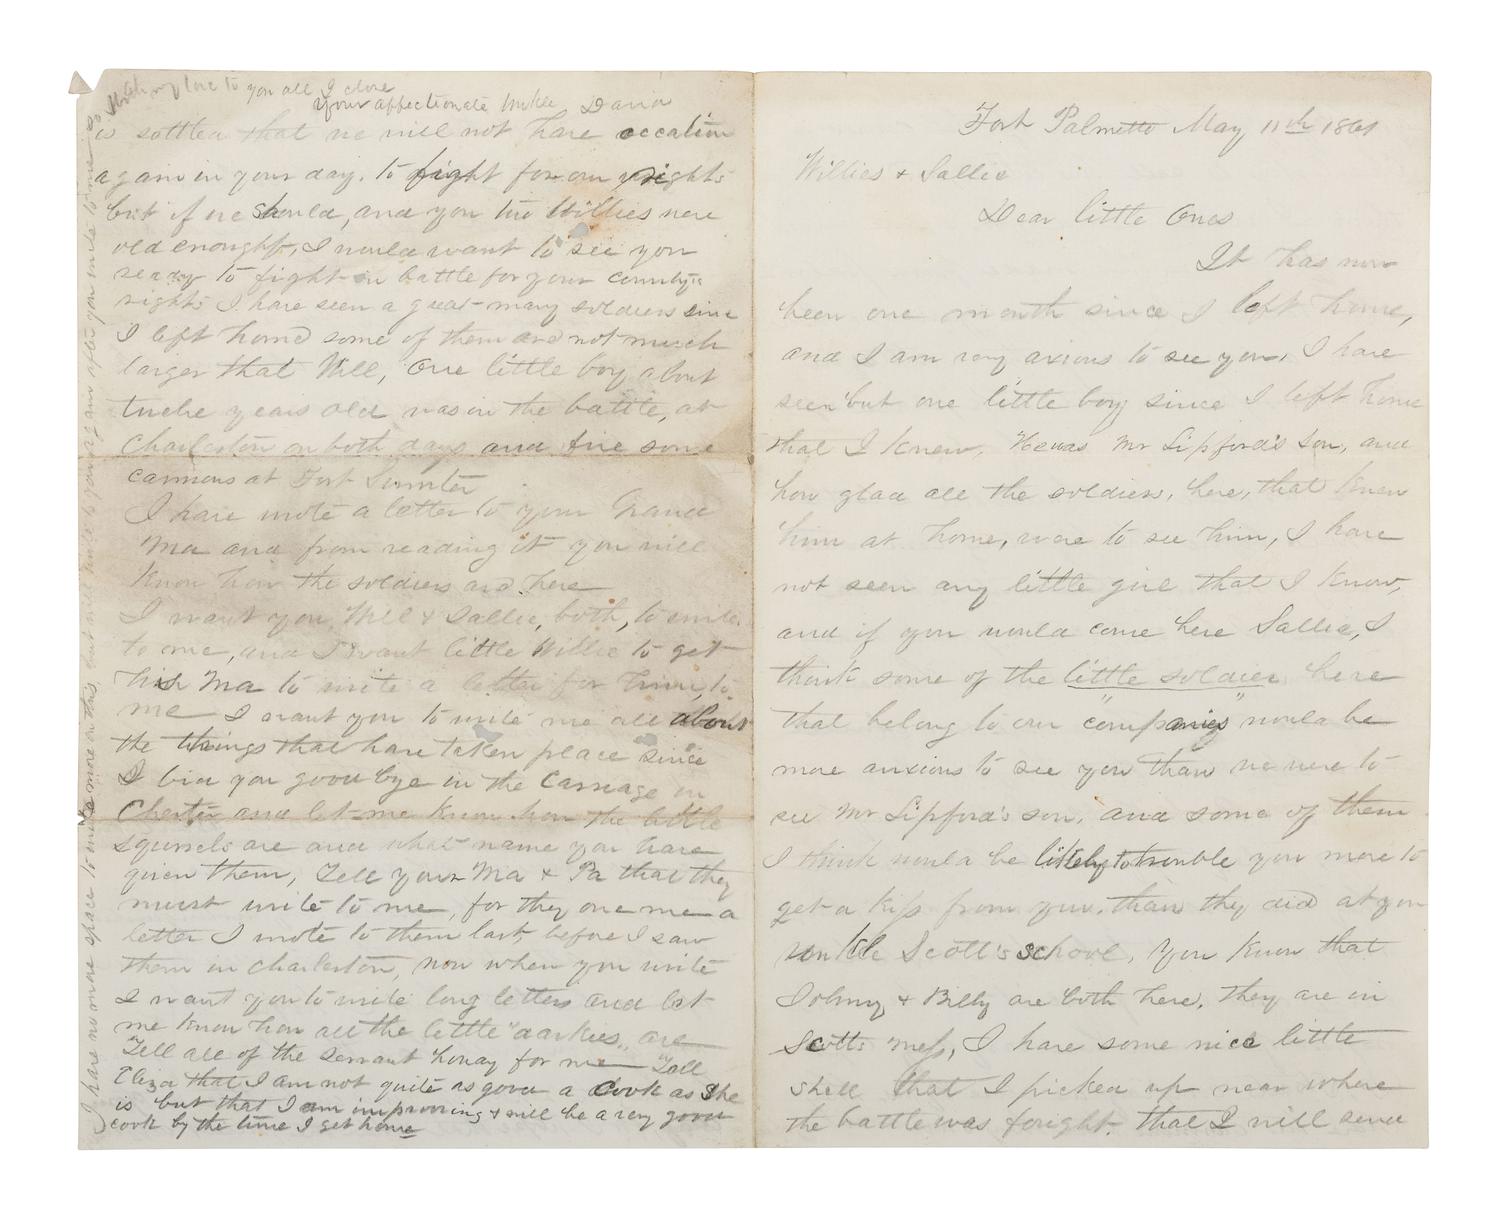 Fort Palmetto May 11th 1861
Willies & Sallie
Dear little Ones
It has now
been one month since I left home,
and I am very axious to see you. I have
seen but one little boy since I left home
that I knew. He was Mr Lipford's Son, and
how glad all the soldiers, here, that knew
him at home, were to see him, I have
not seen any little girl that I know,
and if you would come here Sallie, I
think some of the little soldier here
that belong to our "companies" would be
more anxious to see you than we were to
see Mr Lipford's son. and some of them
I think would be likely to trouble you more to
get a kiss from you. than they did at you
unkle Scott's school. You know that
Johny & Billy are both here. they are in
Scotts mess, I have some nice little
shell that I picked up near where
the battle was fought. that I will send
is settled that we will not have occation
again in your day. to fight for our rights
but if we should, and you two Willies were
old enough, I would want to see you
ready to fight in battle for your country's
rights I have seen a great many soldiers since
I left home some of them are not much
larger that Will, One little boy about
twelve years old was in the battle, at
Charleston on both days and fire some
cannons at Fort Sumter
I have wrote a letter to your Grand
Ma and from reading it you will
know how the soldiers are here
I want you, Will & Sallie, both, to write
to me, and I want little Willie to get
his Ma to write a letter for him, to
me I want you to write me all about
the things that have taken place since
I bid you good bye in the Carriage in
Chester and let me know how the little
squirrels are and what name you have
given them, Tell your Ma & Pa that they
must write to me, for they owe me a
letter I wrote to them last, before I saw
them in charleston, now when you write
I want you to write long letters and let
me know how all the little "darkies" are
Tell all of the servant howdy for me Tell
Eliza that I am not quite as good a Cook as She
is but that I am improoving & will be a very good
cook by the time I get home
I have no more space to write more on this, but will write to you again after you write to me
With my love to you all I close
Your affectionate Unkle David